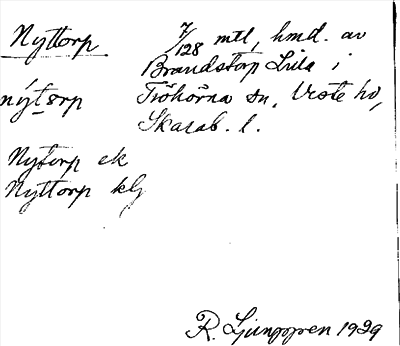 Nyttorp 7/128 mtl, hmd. av
Brandstorp Lilla i
nýtǝrp Fröhörna sn, Vrste hd,
Skarab. l.
Nytorp ek
Nyttorp klg
R. Ljunggren 1929